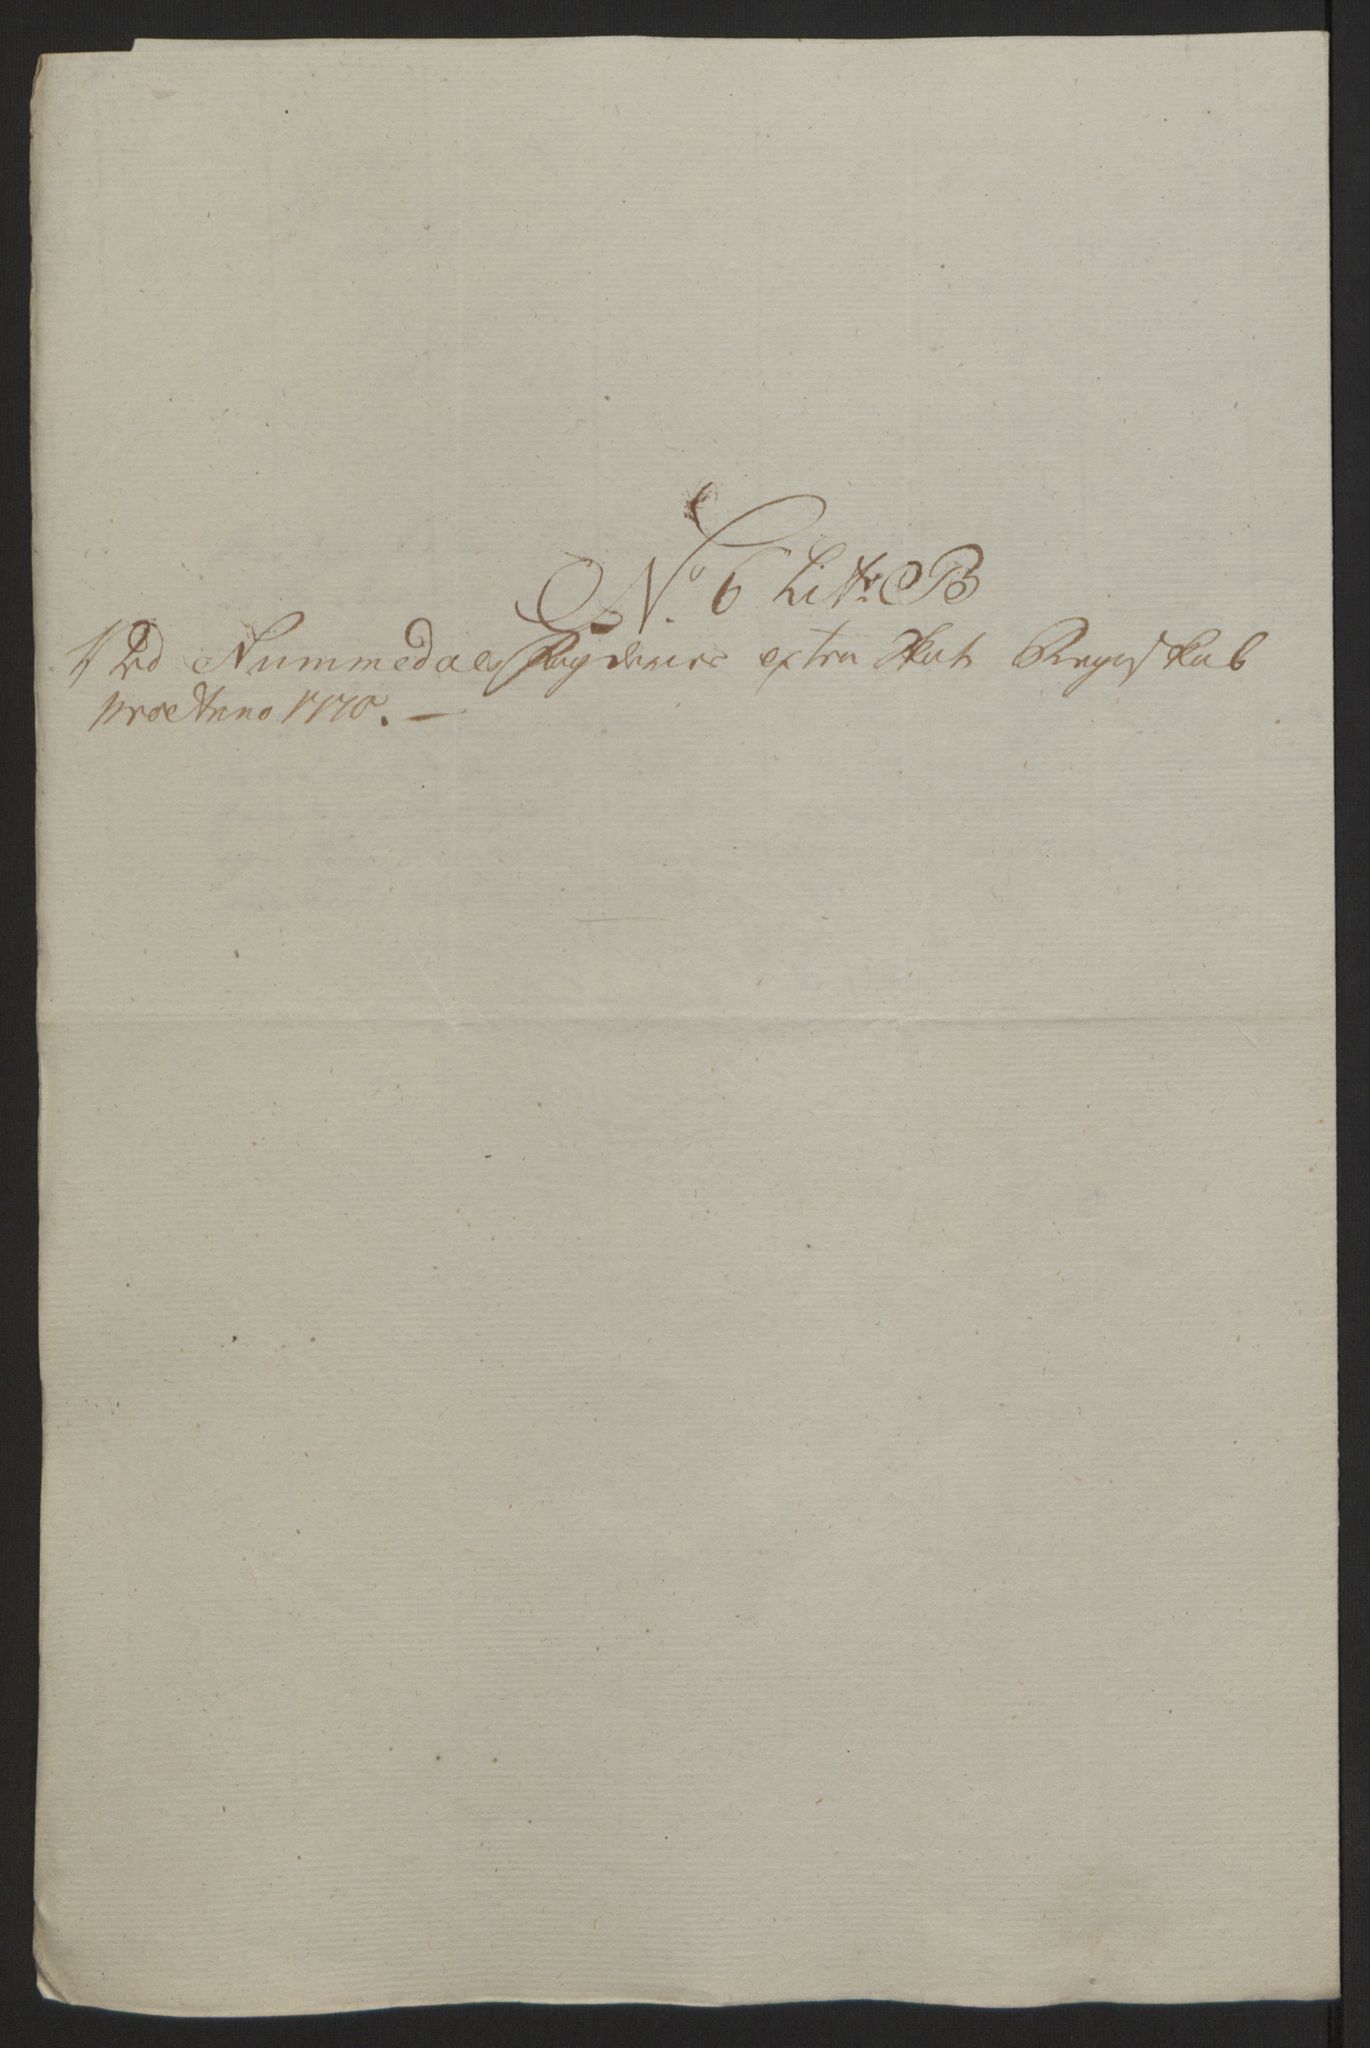 No 6 Litr: B
Ved Nummedals Fogderies extra Skatt Regnskab
pro Anno 1770.